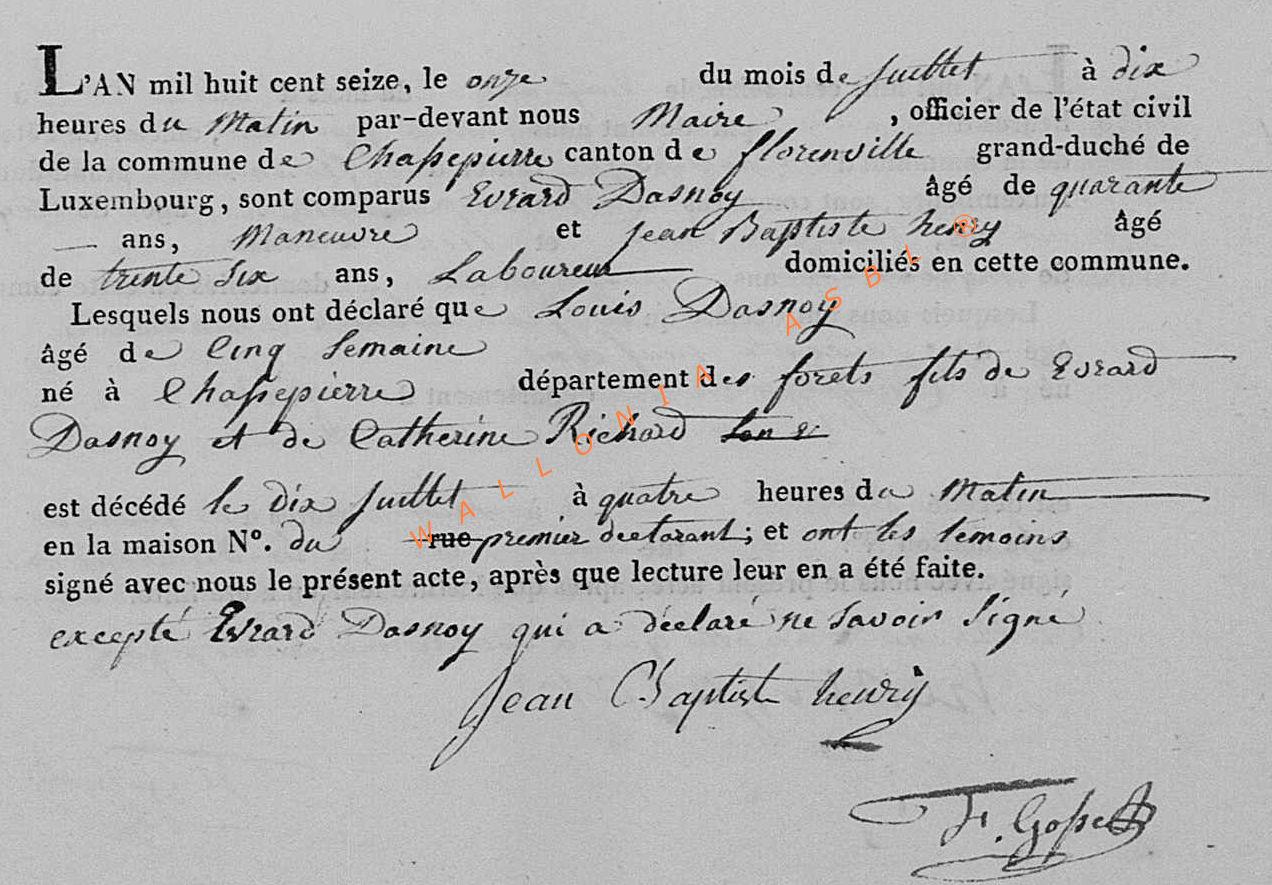 L'AN mil huit cent seize, le onze du mois de juillet à dix
heures du Matin par-devant nous Maire , officier de l'état civil
de la commune de Chassepierre canton de florenville grand-duché de
Luxembourg, sont comparus Evrard Dasnoy âgé de quarante
ans, Maneuvre et jean Baptiste henry âgé
de trente six ans, Laboureur domiciliés en cette commune.
Lesquels nous ont déclaré que Louis Dasnoy
âgé de Cinq Semaine
né à Chassepierre département des forets fils de Evrard
Dasnoy et de Catherine Richard
est décédé le dix juillet à quatre heures du Matin
en la maison Nº. du rue premier declarant; et ont les temoins
signé avec nous le présent acte, après que lecture leur en a été faite.
excepté Evrard Dasnoy qui a déclaré ne savoir Signé
Jean Baptist henry
WALLONIA ASBL ®